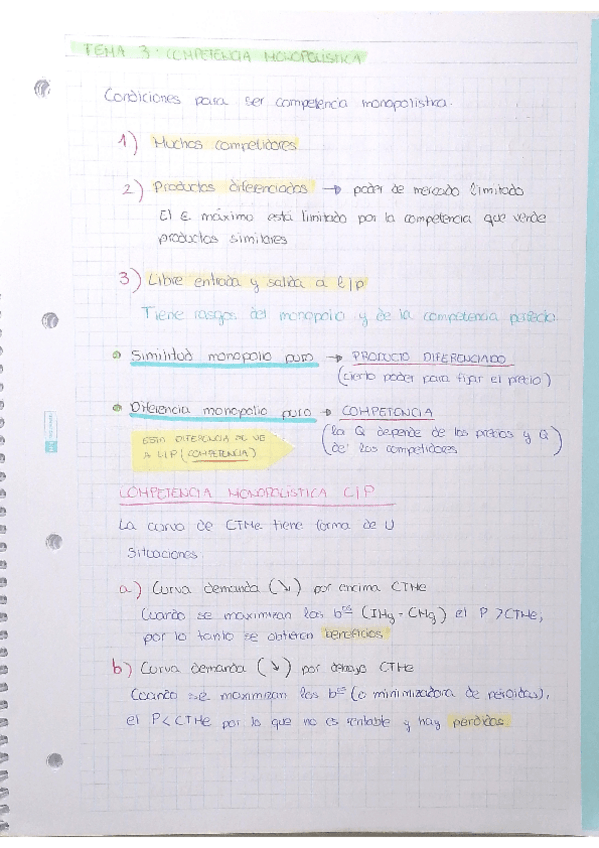 TEMA 3: COMPETENCIA MONOPOLÍSTICA
Condiciones para ser competencia monopolistica.
1) Muchos competidores
2) Productos diferenciados → poder de mercado limitado
El € máximo está limitado por la competencia que vende
productos similares
3) Libre entrada y salida a l/p
Tiene rasgos del monopolio y de la competencia perfecta.
Similitud monopolio puro → PRODUCTO DIFERENCIADO
(cierto poder para fijar el precio)
Diferencia monopolio puro → COMPETENCIA
(la Q depende de los precios y Q
de los competidores)
ESTA DIFERENCIA SE VE
A L/P (COMPETENCIA)
COMPETENCIA MONOPOLÍSTICA C/P
La curva de CTMe tiene forma de U
Situaciones
a) Curva demanda (↘) por encima CTMe
Cuando se maximizan los bos (IMg = CMg) el P > CTMe,
por lo tanto se obtienen beneficios
b) Curva demanda (↘) por debajo CTMe
Cuando se maximizan los bos (o minimizadora de pérdidas),
el P < CTMe por lo que no es rentable y hay perdidas